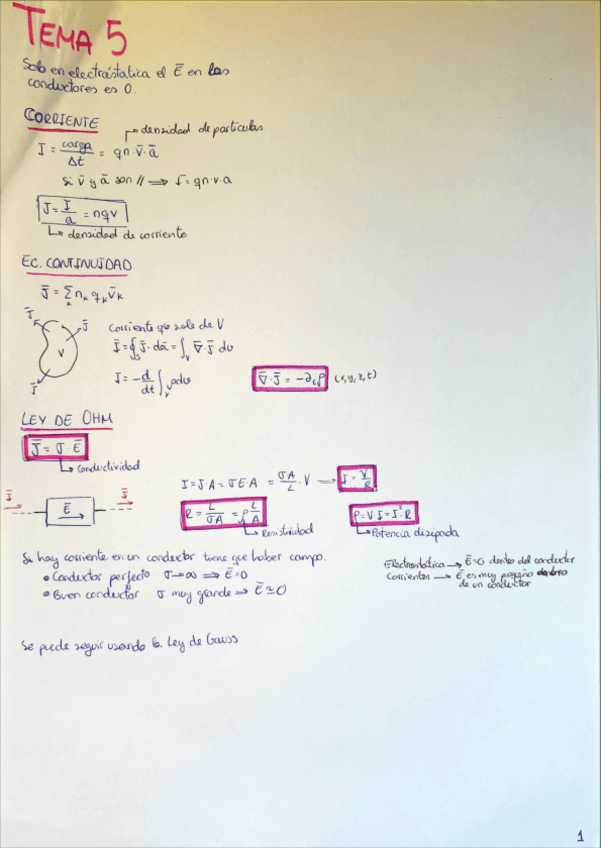 TEMA 5
Solo en electrostatica el E̅ en los
conductores es 0.
CORRIENTE
↳ densidad de particulas
I = carga/Δt = qn·v̅·a̅
si v̅ y a̅ son // ⟹ I = qn·v·a
J = I/a = nqv
↳ densidad de corriente
EC. CONTINUIDAD
J̅ = ∑ₖ nₖ qₖ v̅ₖ
J̅ J̅ V J̅
Corriente que sale de V
I = ∮ₛ J̅·da̅ = ∫ᵥ ∇̅·J̅ dv
I = -d/dt ∫ᵥ ρdv
∇̅·J̅ = -∂ₜρ (x,y,z,t)
LEY DE OHM
J̅ = σ·E̅
↳ Conductividad
I = J·A = σEA = σA/L · V → I = V/R
J̅ E̅ J̅
R = L/σA = ρ L/A
↳ Resistividad
P = V·I = I²·R
↳ Potencia disipada
Si hay corriente en un conductor tiene que haber campo.
• Conductor perfecto σ→∞ ⟹ E̅=0
• Buen conductor σ muy grande ⟹ E̅≃0
Electrostatica → E̅=0 dentro del conductor
Corrientes → E̅ es muy pequeño dentro
de un conductor
Se puede seguir usando la Ley de Gauss
1